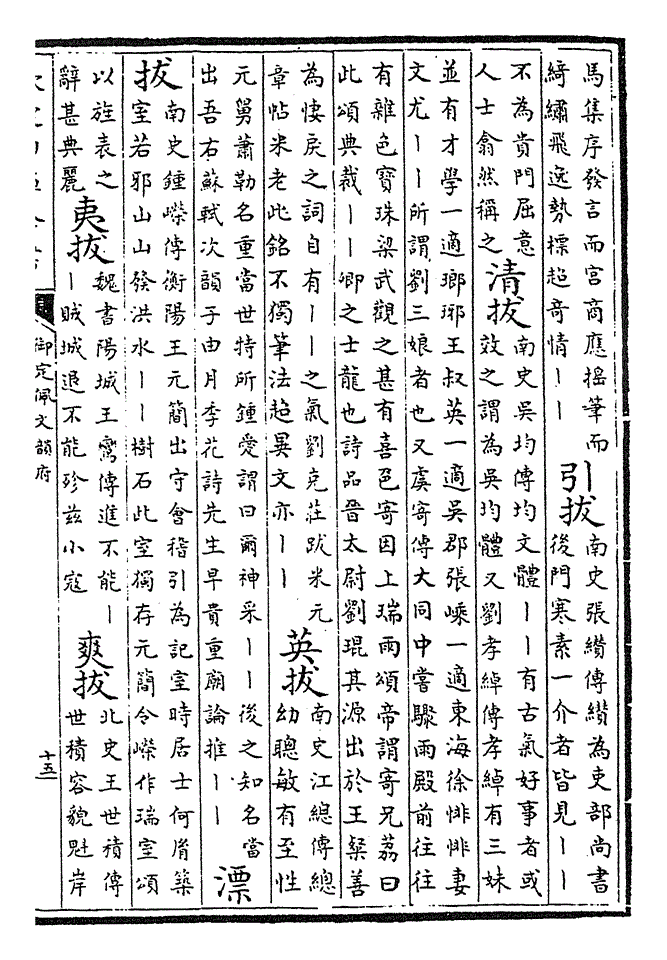 馬集序發言而宫商應揺筆而
綺繡飛逸勢標超奇情丨丨
引拔
南史張纘傳纘為吏部尚書
後門寒素一介者皆見丨丨
不為貴門屈意
人士翕然稱之
清拔
南史吳均傳均文體丨丨有古氣好事者或
效之謂為吳均體又劉孝綽傳孝綽有三妹
並有才學一適瑯琊王叔英一適吳郡張嵊一適東海徐悱悱妻
文尤丨丨所謂劉三娘者也又虞寄傳大同中嘗驟雨殿前往往
有雜色寶珠梁武觀之甚有喜色寄因上瑞雨頌帝謂寄兄荔曰
此頌典裁丨丨卿之士龍也詩品晉太尉劉琨其源出於王粲善
為悽戾之詞自有丨丨之氣劉克莊跋米元
章帖米老此銘不獨筆法超異文亦丨丨
英拔
南史江總傳總
幼聰敏有至性
元舅蕭勒名重當世特所鍾愛謂曰爾神采丨丨後之知名當
出吾右蘇軾次韻子由月季花詩先生早貴重廟論推丨丨
漂
拔
南史鍾嶸傳衡陽王元簡出守會稽引為記室時居士何胤築
室若邪山山發洪水丨丨樹石此室獨存元簡令嶸作瑞室頌
以旌表之
辭甚典麗
夷拔
魏書陽城王鸞傳進不能丨
丨賊城退不能殄兹小寇
爽拔
北史王世積傳
世積容貌魁岸
御定佩文韻府
十五